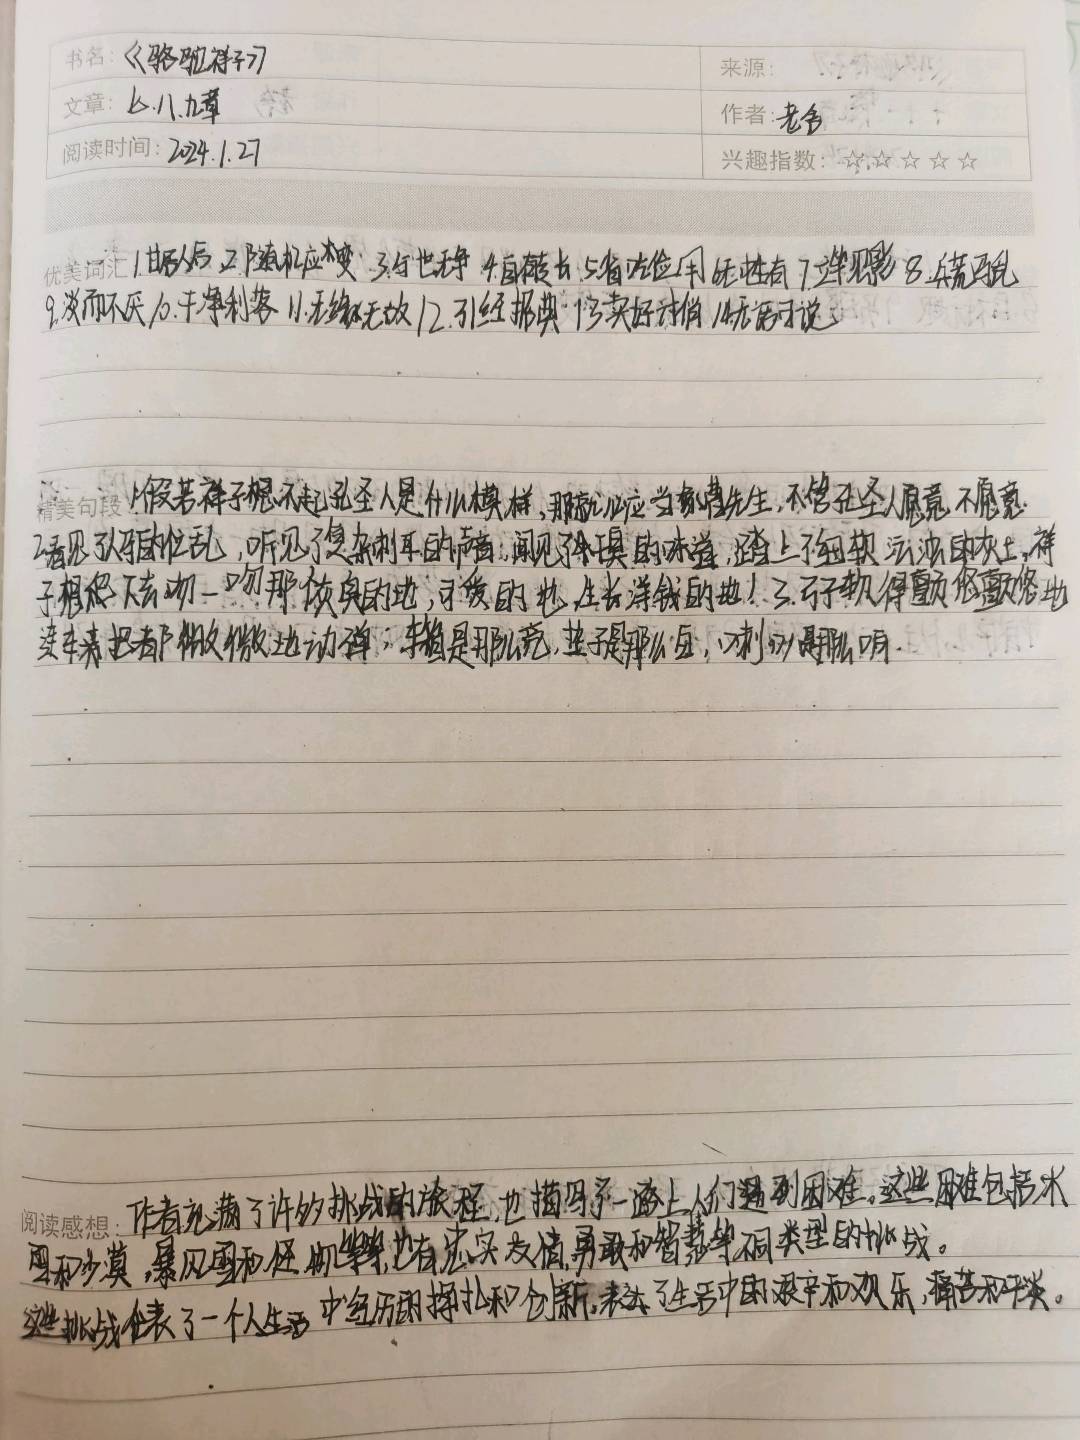 书名:《骆驼祥子》
来源:
文章: 七.八.九章
作者:老舍
阅读时间:2024.1.27
兴趣指数:☆☆☆☆☆
优美词汇 1.甘居人后 2.随机应变 3.与世无争 4.自 5.省吃俭用 6. 7.立竿见影 8.兵荒马乱
9.淡而不厌 10.干净利落 11.无缘无故 12.引经据典 13.卖好讨俏 14.无话可说
精美句段 1.假若祥子想不起孔圣人是什么模样,那就必应当像曹先生,不管孔圣人愿意不愿意.
2.看见了人马的忙乱,听见了复杂刺耳的声音,闻见了干臭的味道,踏上了细软污浊的灰土,祥
子想爬下去吻一吻那灰臭的地,可爱的地,生长洋钱的地! 3.弓子软得颤悠颤悠地
连车把都微微地动弹;车箱是那么亮,垫子是那么白,喇叭是那么响.
阅读感想: 作者充满了许多挑战的旅程,也描写了一路上人们遇到困难。这些困难包括冰
雪和沙漠,暴风雪和怪物等等,也有忠实友情,勇敢和智慧等不同类型的挑战。
这些挑战代表了一个人生活中经历的挣扎和创新。表达了生活中的艰辛和欢乐,痛苦和平淡。